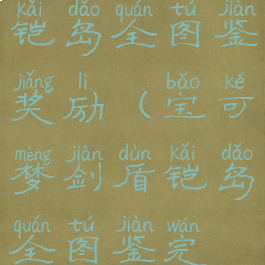 kǎi dǎo quán tú jiàn
铠岛全图鉴
jiǎng lì bǎo kě
奖励（宝可
mèng jiàn dùn kǎi dǎo
梦剑盾铠岛
quán tú jiàn wán
全图鉴完